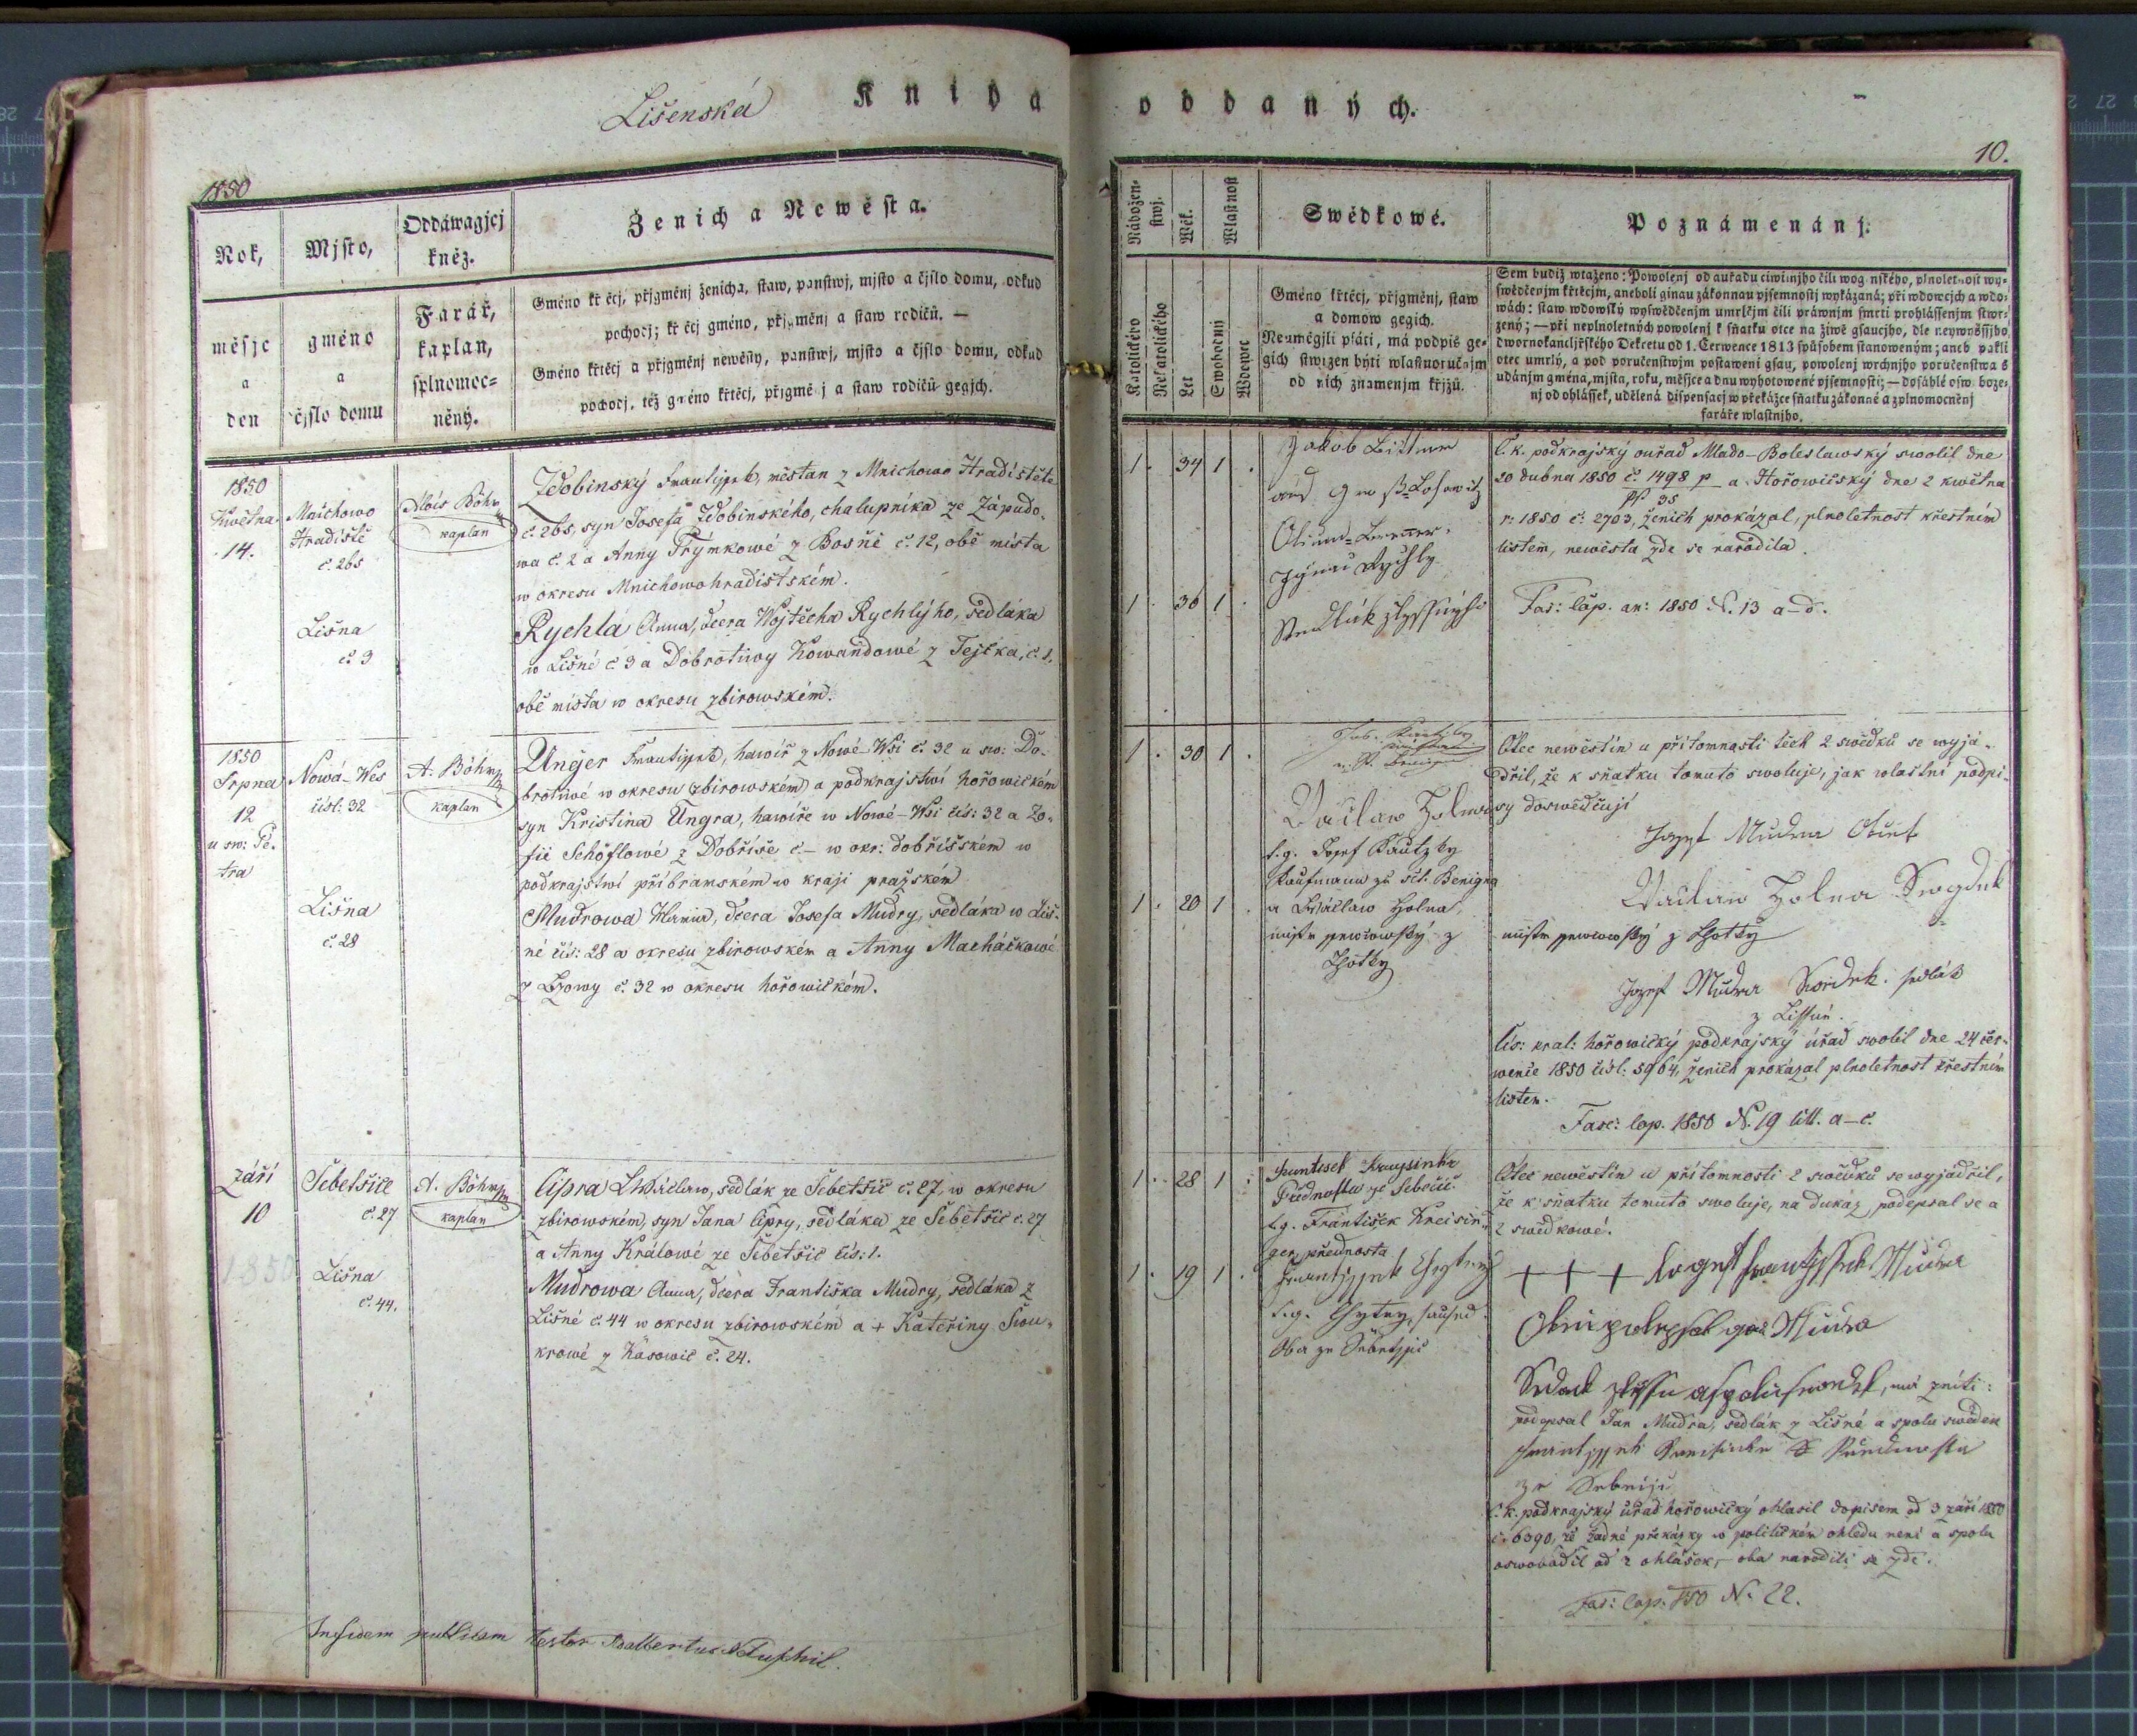 Lišenská Kniha oddaných.
1850
10.
Rok,
měsjc
a
den
Mjsto,
gméno
a
čjslo domu
Oddáwagjcj
kněz.
Farář,
kaplan,
splnomoc=
něný.
Ženich a Newěsta.
Gméno křtěcj, přjgměnj ženicha, staw, panstwj, mjsto a čjslo domu, odkud
pochozj; křtěcj gméno, přjgměnj a staw rodičů. —
Gméno křtěcj a přjgměnj newěsty, panstwj, mjsto a čjslo domu, odkud
pochozj, též gméno křtěcj, přjgměnj a staw rodičů gegjch.
Nábožen-
stwj.
Katolického
Nekatolického
Wěk.
Let
Wlastnost
Swobodný
Wdowec
Swědkowé.
Gméno křtěcj, přjgměnj, staw
a domow gegich.
Neumégjli psáti, má podpis ge-
gich stwrzen býti wlastnoručnjm
od nich znamenjm křjžů.
Poznámenánj.
Sem budiž wtaženo: Powolenj od auřadu ciwilnjho čili wogenského, plnoletnost wy-
swědčenjm křtěcjm, aneboli ginau zákonnau pjsemnostj wykázaná; při wdowcjch a wdo-
wách: staw wdowský wyswědčenjm umrlčjm čili práwnjm smrti prohlássenjm stwr-
zený; — při neplnoletných powolenj k sňatku otce na žiwě gsaucjho, dle neywyššjho
dwornokancljřského Dekretu od 1. Čerwence 1813 spůsobem stanoweným; aneb pakli
otec umrlý, a pod poručenstwjm postaweni gsau, powolenj wrchnjho poručenstwa s
udánjm gména, mjsta, roku, měsjce a dnu wyhotowené pjsemnosti; — dosáhlé oswoboze-
nj od ohlássek, udělená dispensacj w překážce sňatku zákonné a zplnomocněnj
faráře wlastnjho.
1850
Května
14.
Mnichowo
Hradiště
č. 265
Lišna
č. 3
Alois Böhm
kaplan
Zdobinský František, měštan z Mnichowo Hradiště
č. 265, syn Josefa Zdobinského, chalupníka ze Zápudo-
wa č. 2 a Anny Frýmkowé z Bosně č. 12, obě místa
w okresu Mnichowohradištském.
Rychlá Anna, dcera Wojtěcha Rychlýho, sedláka
w Lišné č 3 a Dobrotiwy Kowandowé z Tejčka, č. 1.
obě místa w okresu zbirowském.
1 34 1
1 36 1
Jakob Bittner
Sedlák z Lissnýho
C. k. podkrajský ouřad Mlado-Boleslawský swolil dne
20 dubna 1850 č. 1498 p a Hořowický dne 2 května
r: 1850 č. 2703, ženich prokázal, plnoletnost křestním
listem, newěsta zde se narodila.
Fas: cop. an: 1850 N. 13 a–d.
1850
Srpna
12
u sw: Pe-
tra
Nowá-Wes
čísl: 32
Lišna
č. 28
A. Böhm
kaplan
Unger František, hawíř z Nowé-Wsi č. 32 u sw: Do-
brotiwé w okresu zbirowském a podkrajstwí hořowickém
syn Kristina Ungra, hawíře w Nowé-Wsi čís: 32 a Žo-
fie Schöflowé z Dobříše č.– w okr: dobříšském w
podkrajstwí příbramském w kraji pražském
Mudrowa Marie, dcera Josefa Mudry, sedláka w Liš-
né čís: 28 w okresu zbirowském a Anny Macháčkowé
z Lzowy č. 32 w okresu hořowickém.
1 30 1
1 20 1
Václaw Holna
l. g. Josef Kautzky
Kaufmann zu sct. Benigna
a Wáclaw Holna,
mistr z
Lhotky
Otec newěstin u přítomnosti těch 2 swědků se wyjá-
dřil, že k sňatku tomuto swoluje, jak wlastní podpi-
sy doswědčují
Jozef Mudra Otec
Václaw Holna Swedek
z Lhotky
Jozef Mudra Swědek. sedlák
z Lissné.
Cís: král: hořowický podkrajský úřad swolil dne 24 čer-
wence 1850 čísl: 5964, ženich prokázal plnoletnost křestním
listem.
Fasc: cop. 1850 N. 19 litt. a–c.
září
10
1850
Šebetšice
č. 27
Lišna
č. 44.
A. Böhm
kaplan
Cipra Wáclaw, sedlák ze Šebetšic č. 27, w okresu
zbirowském, syn Jana Cipry, sedláka ze Šebetšic č. 27
a Anny Králowé ze Šebetšic čís: 1.
Mudrowa Anna, dcera Františka Mudry, sedláka z
Lišné č. 44 w okresu zbirowském a + Kateřiny Sou-
krowé z Kásowic č. 24.
1 28 1
1 19 1
l. g. František Kreisin-
ger, přednosta
l. g. Chytry, soused
Oba ze Šebetšic
Otec newěstin u přítomnosti 2 swědků se wyjádřil,
že k sňatku tomuto swoluje, na důkaz podepsal se a
2 swědkowé.
+ + + Mudra
Mudra
má zníti:
podepsal Jan Mudra, sedlák z Lišné a spolu swědek
C. k. podkrajský úřad hořowický ohlasil dopisem od 3 září 1850
č. 6390, že žadné překážky w politickém ohledu není a spolu
oswobodil od 2 ohlášek, – oba narodili se zde.
Fas: cop. 850 N. 22.
In fidem publicam testor Adalbertus